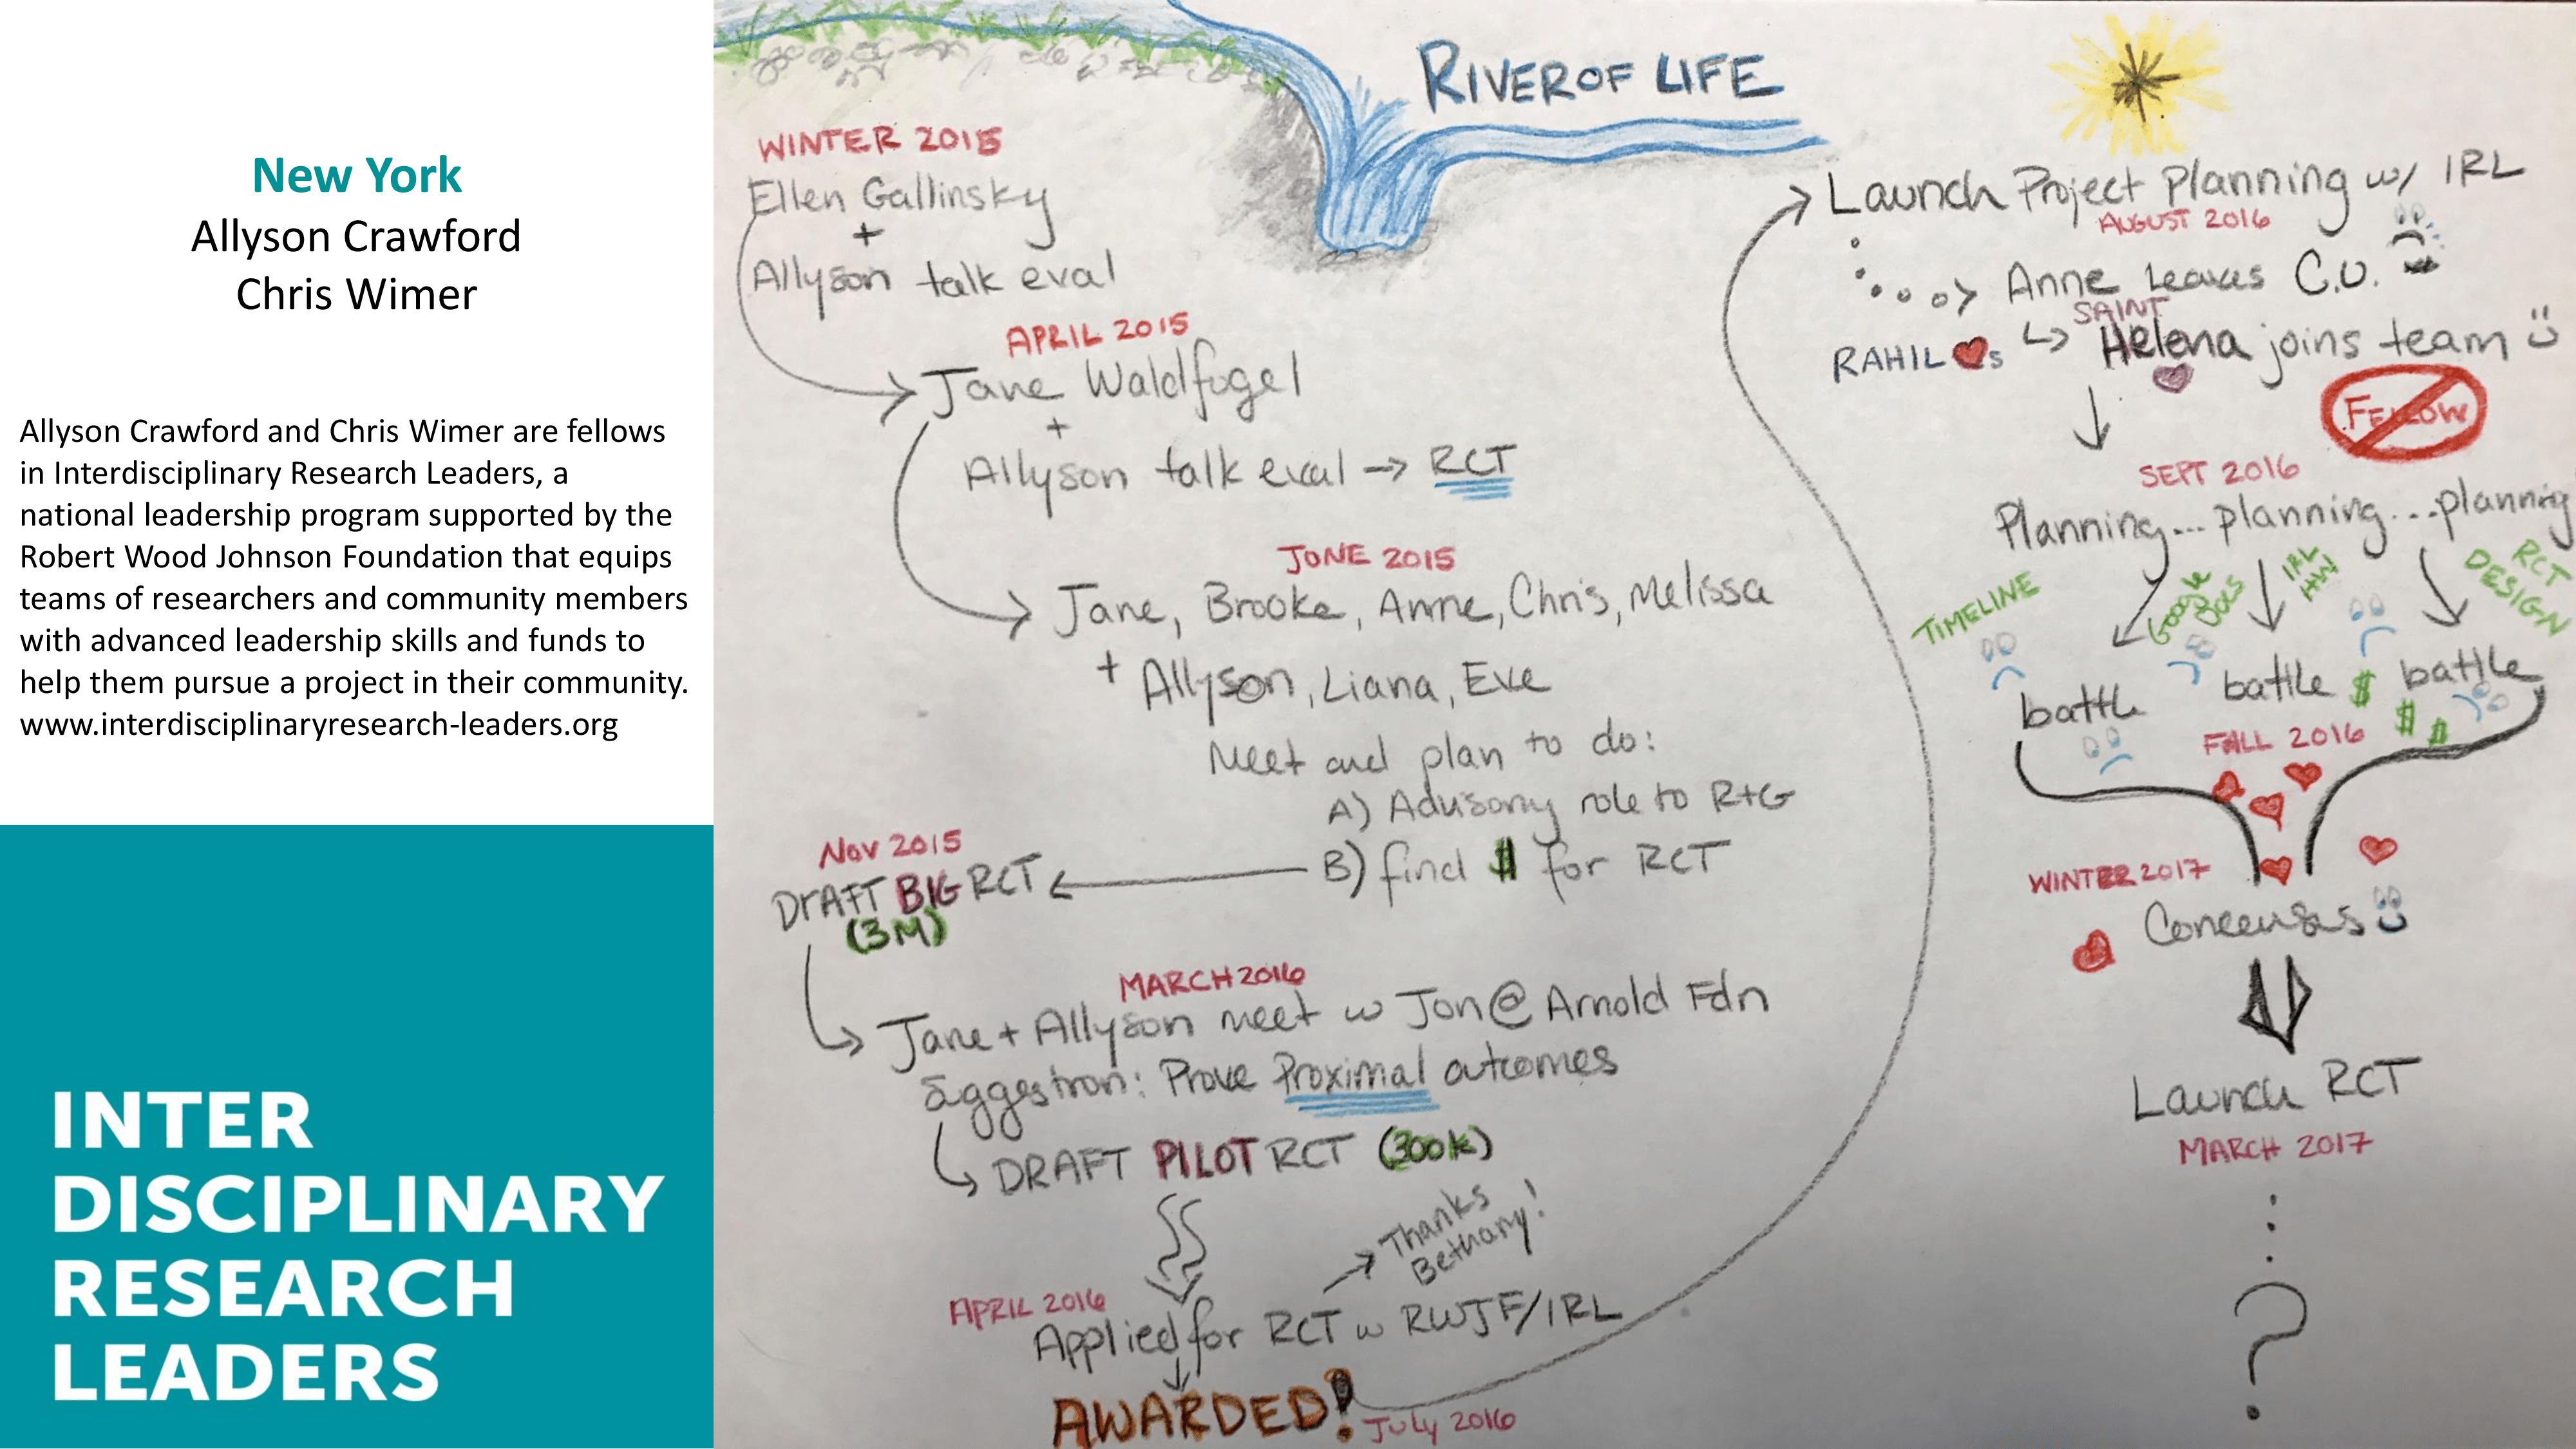 New York
Allyson Crawford
Chris Wimer
Allyson Crawford and Chris Wimer are fellows
in Interdisciplinary Research Leaders, a
national leadership program supported by the
Robert Wood Johnson Foundation that equips
teams of researchers and community members
with advanced leadership skills and funds to
help them pursue a project in their community.
www.interdisciplinaryresearch-leaders.org
INTER
DISCIPLINARY
RESEARCH
LEADERS
RIVER OF LIFE
WINTER 2015
Ellen Gallinsky
+
Allyson talk eval
APRIL 2015
Jane Waldfogel
+
Allyson talk eval → RCT
JUNE 2015
Jane, Brooke, Anne, Chris, Melissa
+ Allyson, Liana, Eve
Meet and plan to do:
A) Advisory role to R+G
B) find $ for RCT
NOV 2015
DrAFT BIG RCT
(3M)
MARCH 2016
Jane + Allyson meet w Jon @ Arnold Fdn
Suggestion: Prove Proximal outcomes
DRAFT PILOT RCT (300K)
Thanks
Bethany!
APRIL 2016
Applied for RCT w RWJF/IRL
AWARDED!
July 2016
Launch Project Planning w/ IRL
AUGUST 2016
Anne Leaves C.U.
SAINT
RAHIL ♥s Helena joins team
FELLOW
SEPT 2016
Planning... planning... planning
TIMELINE
Google
Docs
IRL
HW
RCT
DESIGN
battle battle $ battle
$ $
FALL 2016
WINTER 2017
Concensus
Launch RCT
MARCH 2017
?